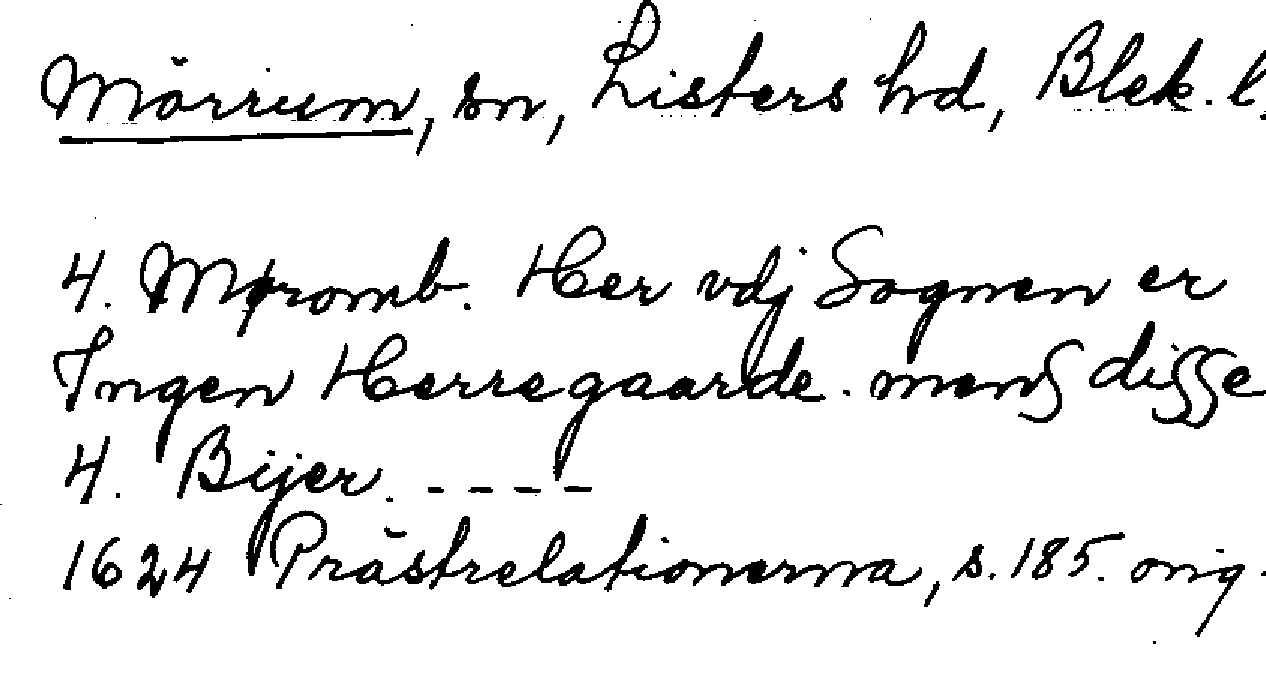 Mörrum, sn, Listers hd, Blek. l.
4. Møromb. Her vdj Sognen er
Ingen Herregaarde. mens disse
4. Bijer. - - - -
1624 Prästrelationerna, s. 185. orig.